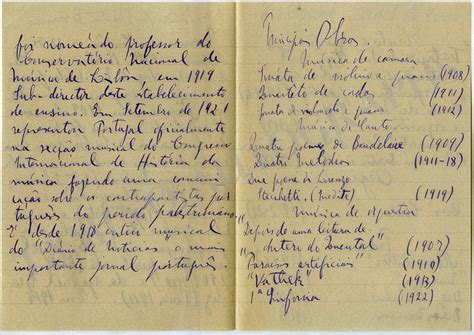 foi nomeado professor do
Conservatório Nacional de
Musica de Lisbôa, em 1919
Sub-director deste Estabelecimento
de ensino. Em Setembro de 1921
representou Portugal oficialmente
na secção musical do Congresso
Internacional de História da
musica fazendo uma comuni-
cação sobre os contrapontistas por-
tugueses do periodo palestriniano.
E' desde 1918 critico musical
do "Diário de Noticias" o mais
importante jornal português.
Principais Obras.
Musica de câmara
Sonata de violino e piano (1908)
Quartêto de cordas (1911)
Sonata de violoncelo e piano (1912)
Musica de Canto.
Quatro poemas de Baudelaire (1909)
Quatro Melodias (1911-18)
Due poema di Lorenzo
Stecchetti. (Inedito) (1919)
Musica de orquestra
"Depois de uma leitura de
Antero de Quental" (1907)
"Paraisos artificiais" (1910)
"Vathek" (1913)
1ª Sinfonia (1922)